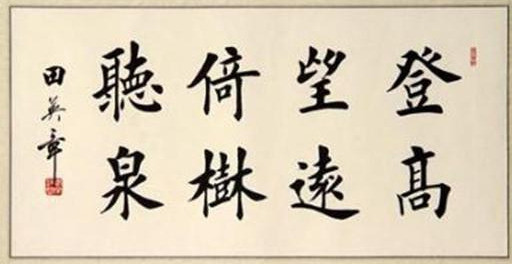 登高
望遠
倚樹
聽泉
田英章